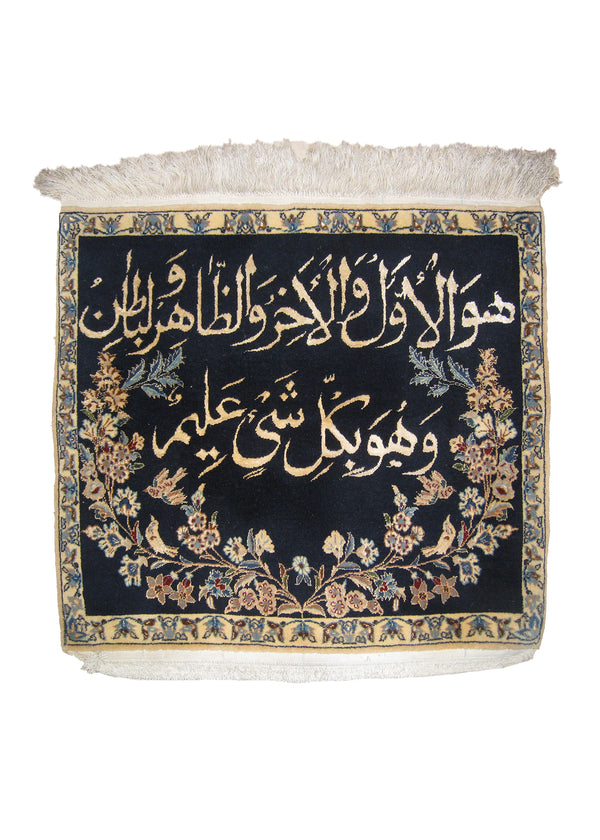 هُوَ الْأُوَّلُ وَالْأَخِرُ وَالظَّاهِرُ وَالْبَاطِنُ
وَ هُوَ بِكُلِّ شَئٍ عَلِيمٌ